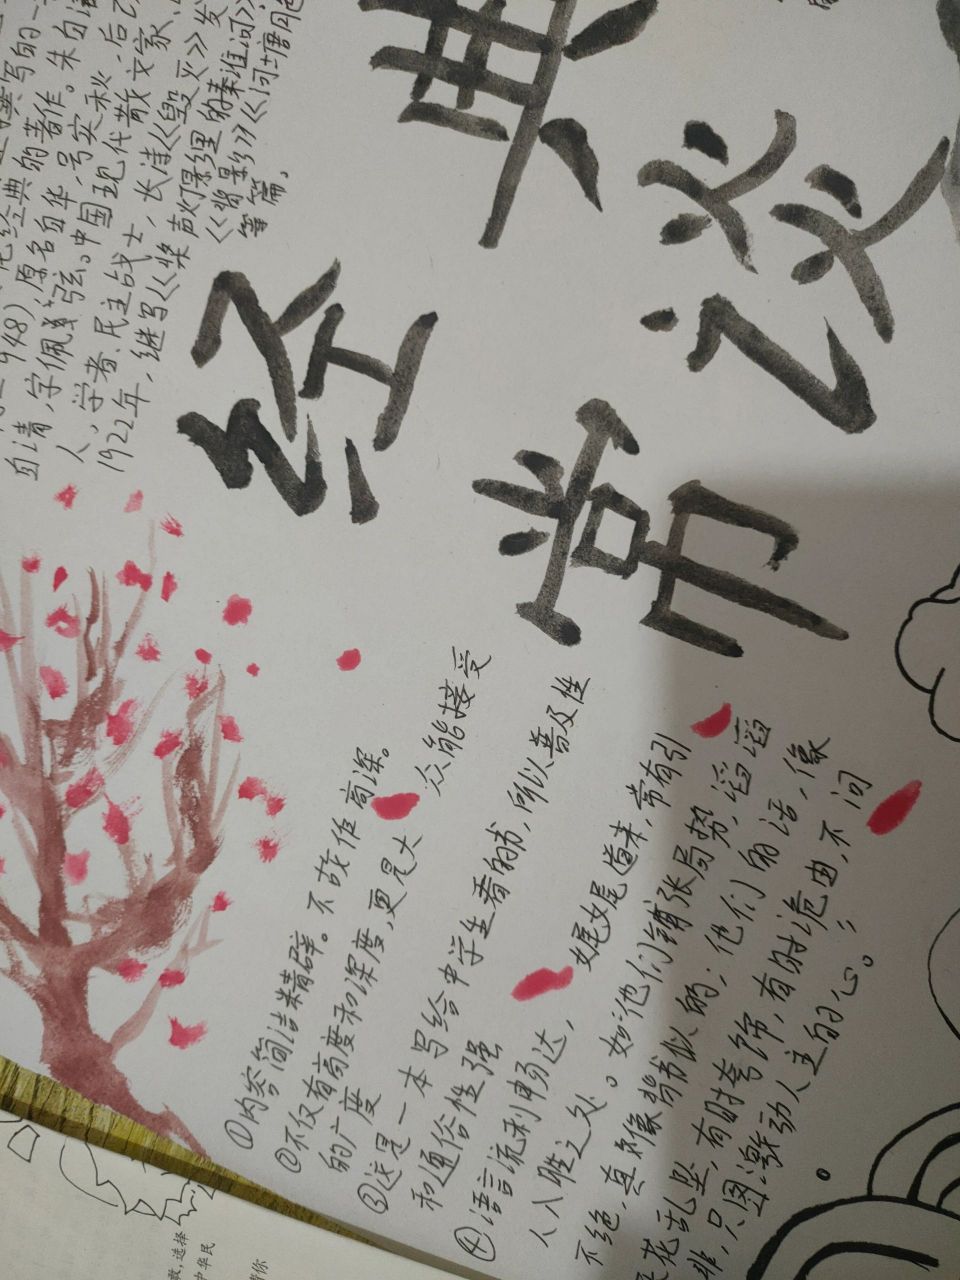 经典
常谈
撰写的一
经典的著作。朱自清
948),原名自华,号实秋,后改
自清,字佩弦。中国现代散文家、
人、学者、民主战士,长诗《毁灭》发
1922年,继写《桨声灯影里的秦淮河》
《背影》《荷塘月色》
等篇,
①内容简洁精辟。不故作高深。
②不仅有高度和深度,更是大众能接受
的广度
③这是一本写给中学生看的书,所以普及性
和通俗性强
④语言流利畅达,娓娓道来,常有引
人入胜之处。如他们铺张局势,滔滔
不绝,真像背书似的;他们的话,像
天花乱坠,有时夸饰,有时诡曲,不问
是非,只图激动人主的心。